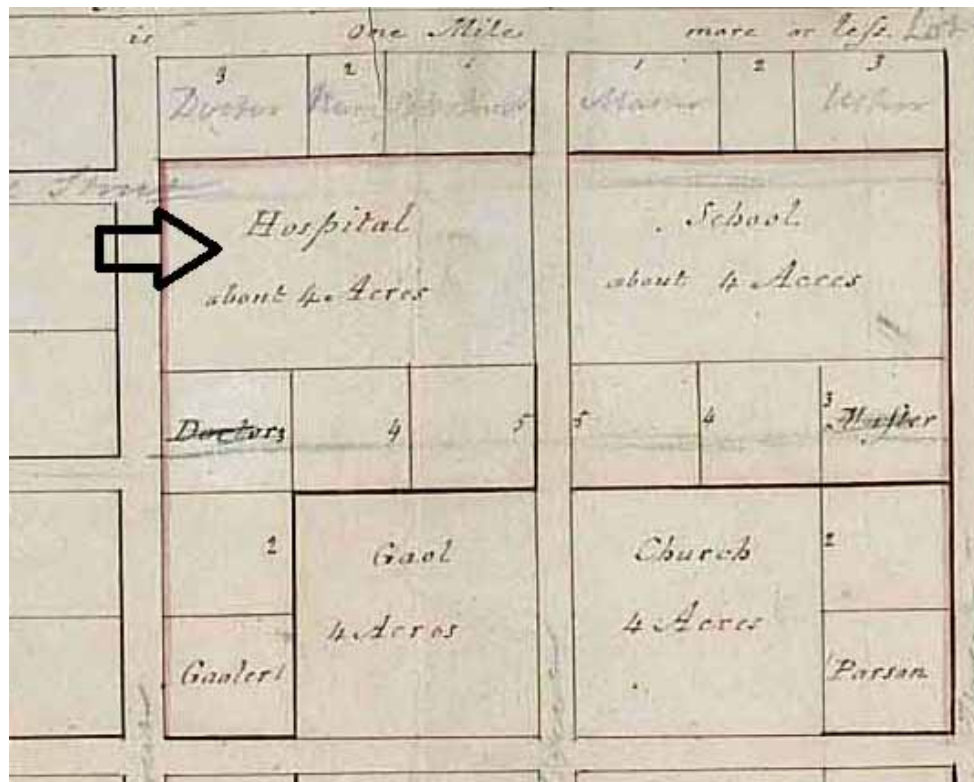 is one Mile more or less Lot
3 2 1 1 2 3
Doctor Master Usher
Hospital School
about 4 Acres about 4 Acres
Doctor 3 4 5 5 4 3 Master
2 Gaol Church 2
4 Acres 4 Acres
Gaoler 1 1 Parson